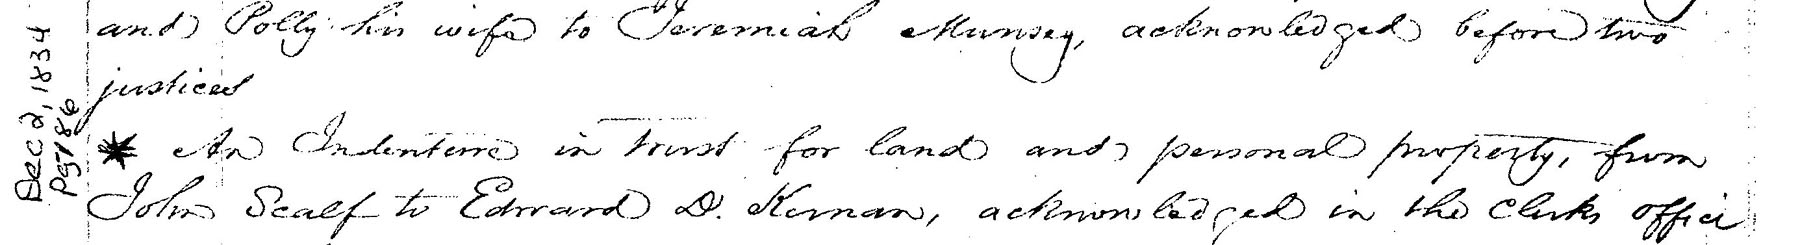 and Polly his wife to Jeremiah Munsey, acknowledged before two
justices
* An Indenture in trust for land and personal property, from
John Scalf to Edward D. Kernan, acknowledged in the Clerks office
Dec 2, 1834
Pg 186